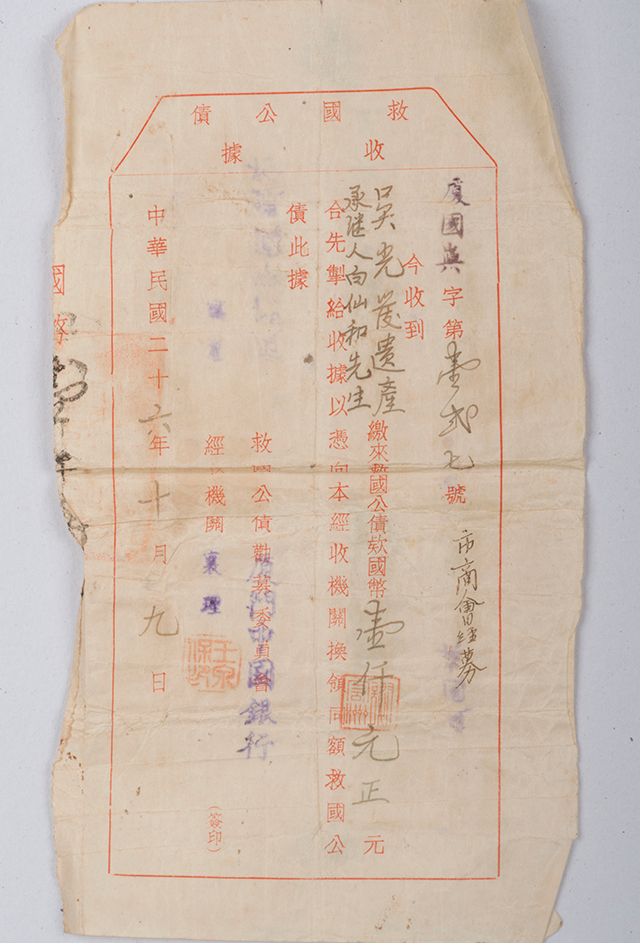 救國公債
收據
廈國興字第壹貳七號
市商會經募
今收到
吳光茂遺產
承繼人白仙和先生
繳來救國公債款國幣壹仟元正元
合先掣給收據以憑向本經收機關換領同額救國公
債此據
救國公債勸募委員會
廈門中國銀行
經收機關
襄理
(簽印)
中華民國二十六年十月九日
國幣壹仟